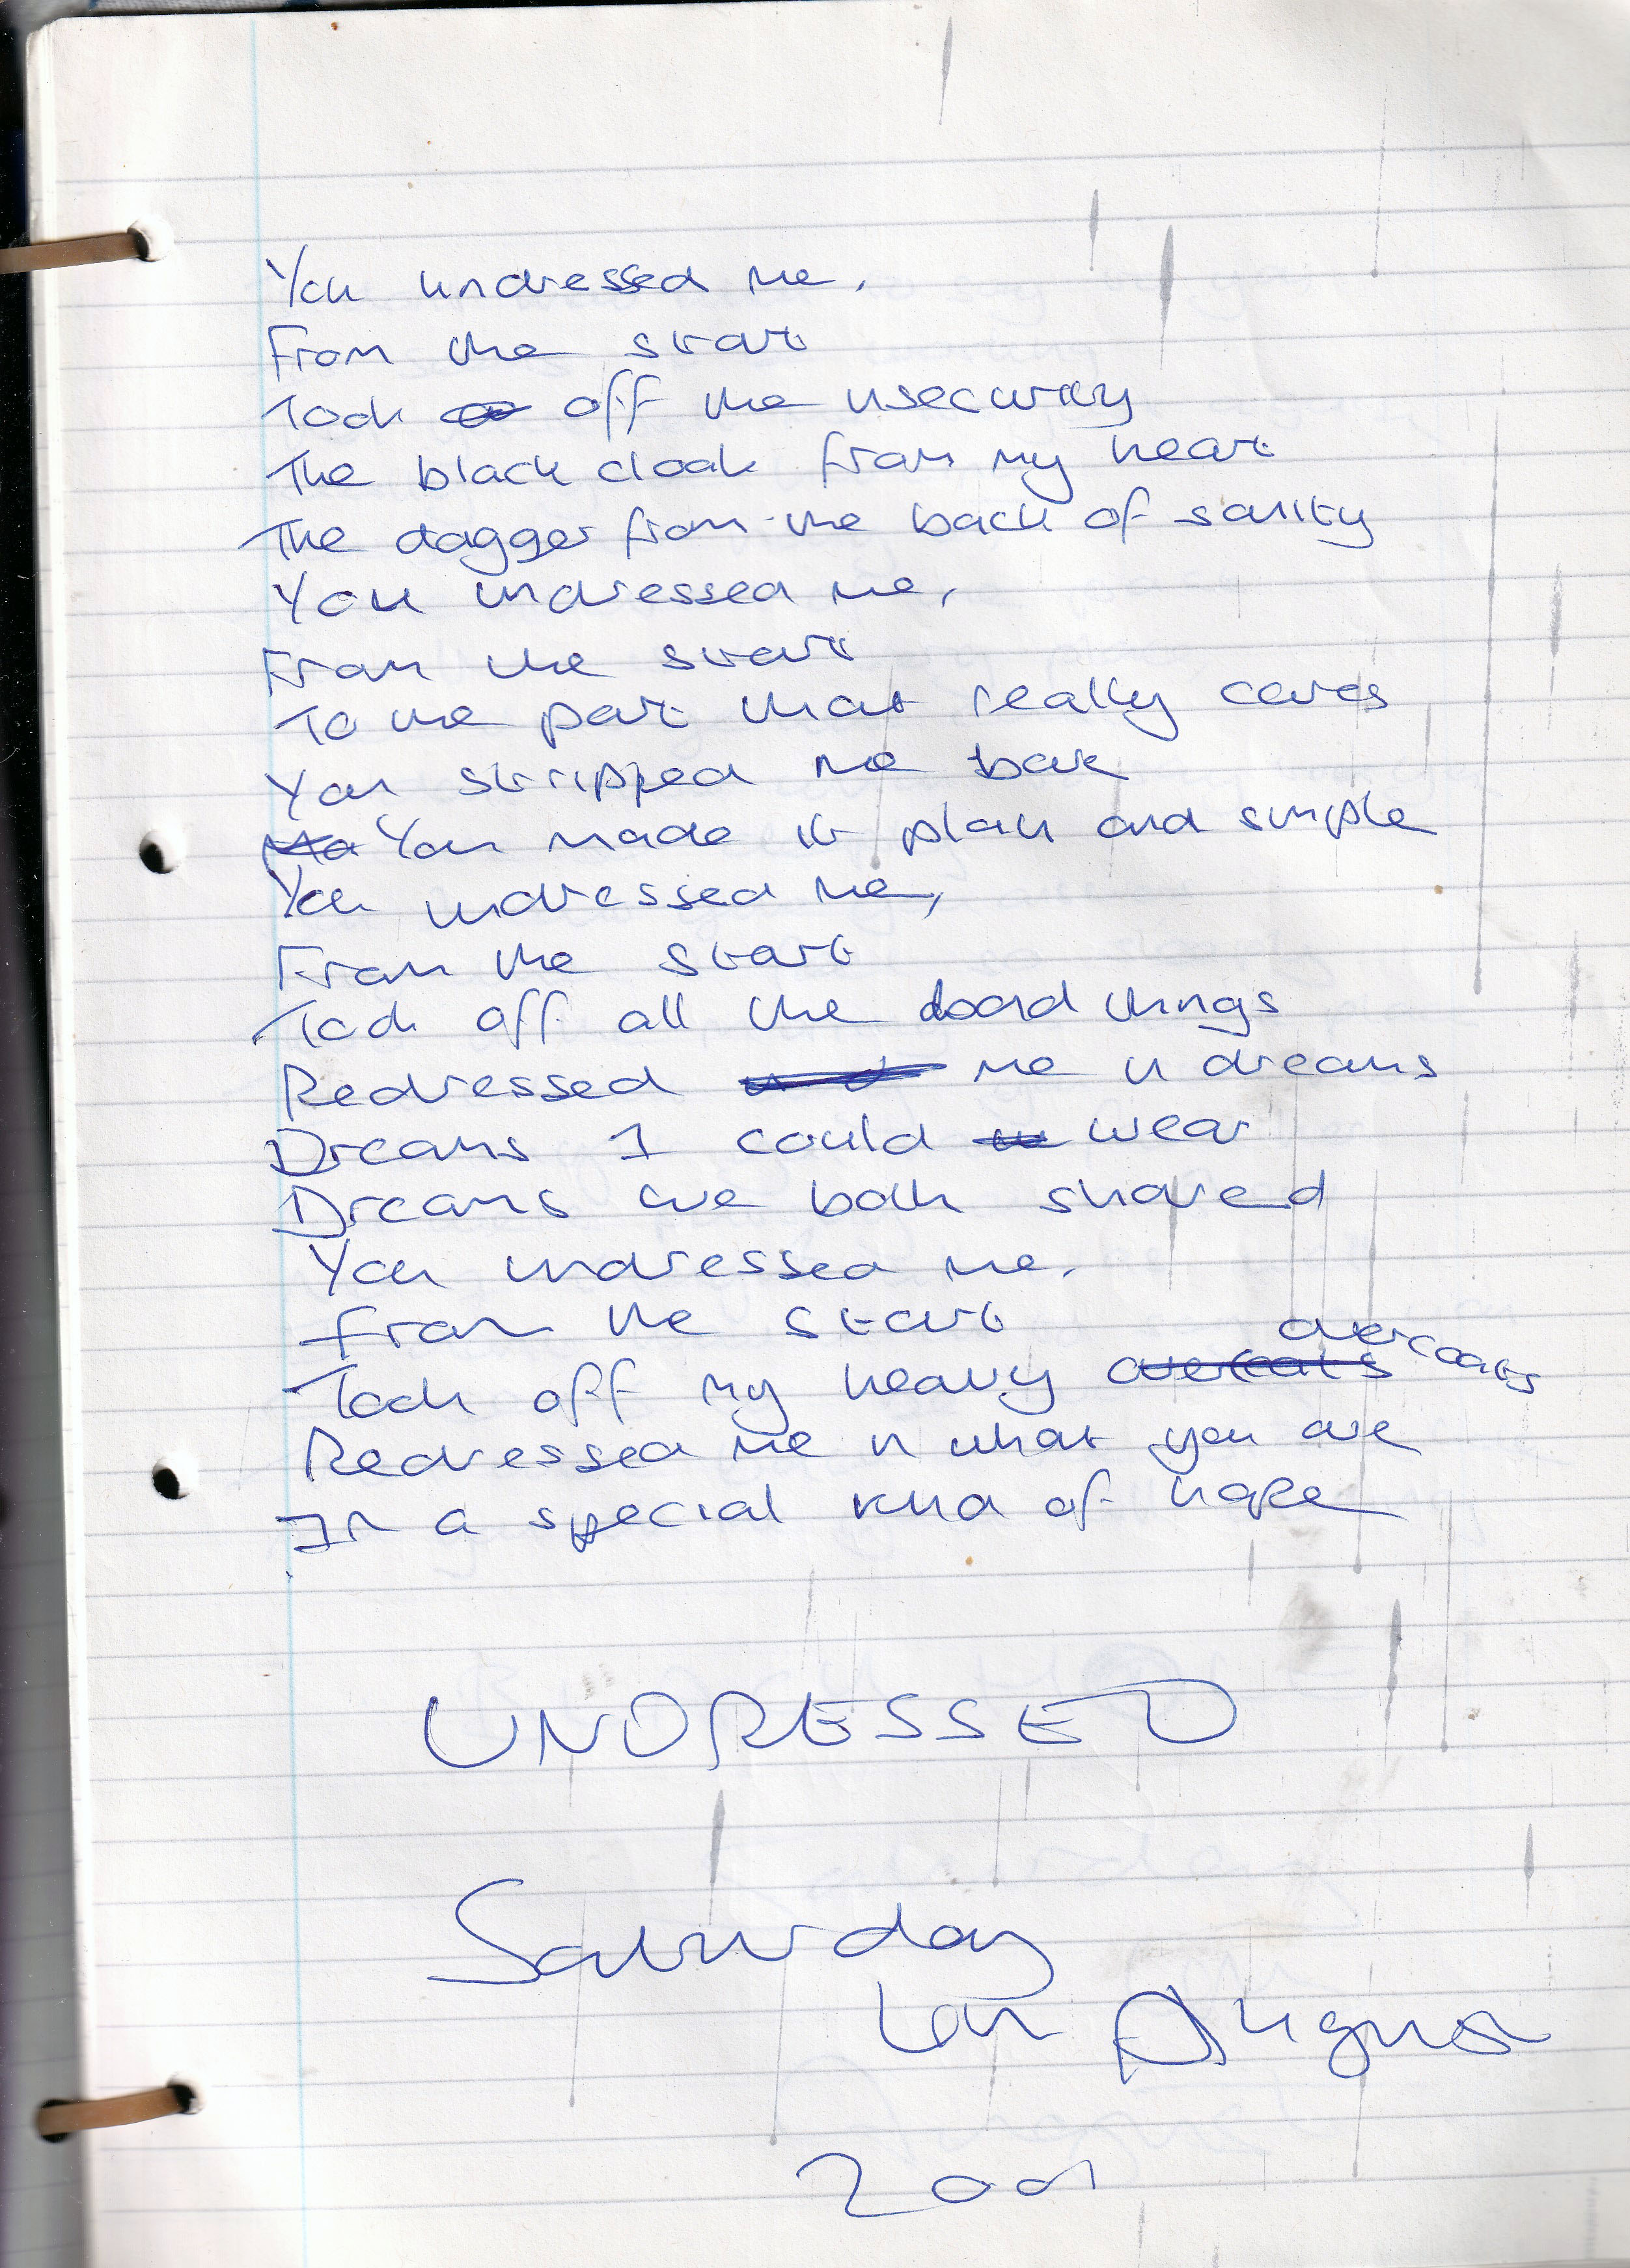 You undressed me,
From the start
Took off the insecurity
The black cloak from my heart
The dagger from the back of sanity
You undressed me,
From the start
To the part that really cares
You stripped me bare
You made it plain and simple
You undressed me,
From the start
Took off all the bad things
Redressed me in dreams
Dreams I could wear
Dreams we both shared
You undressed me,
from the start
Took off my heavy overcoats
Redressed me in what you are
In a special kind of hope
UNDRESSED
Saturday
August
2001